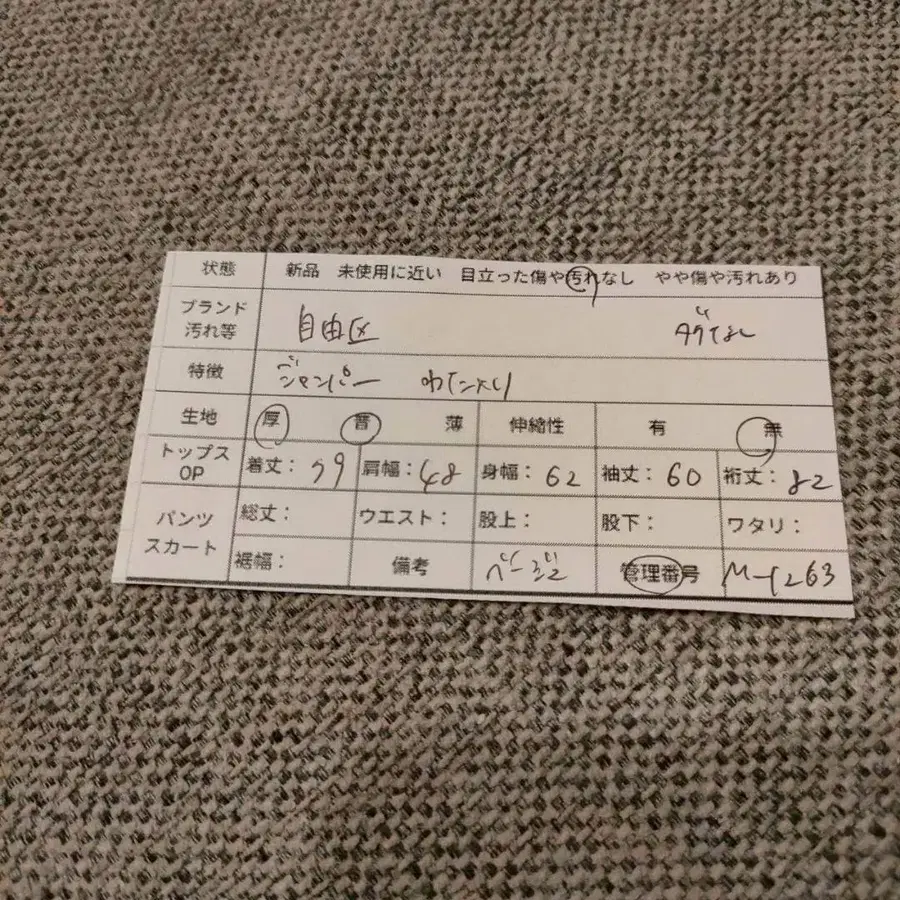 状態 新品 未使用に近い 目立った傷や汚れなし やや傷や汚れあり
ブランド 自由区 タグなし
汚れ等
特徴 ジャンパー わた入り
生地 厚 普 薄 伸縮性 有 無
トップス
OP 着丈: 肩幅:48 身幅:62 袖丈:60 裄丈:82
パンツ 総丈: ウエスト: 股上: 股下: ワタリ:
スカート 裾幅: 備考 ベージュ 管理番号 M-1263